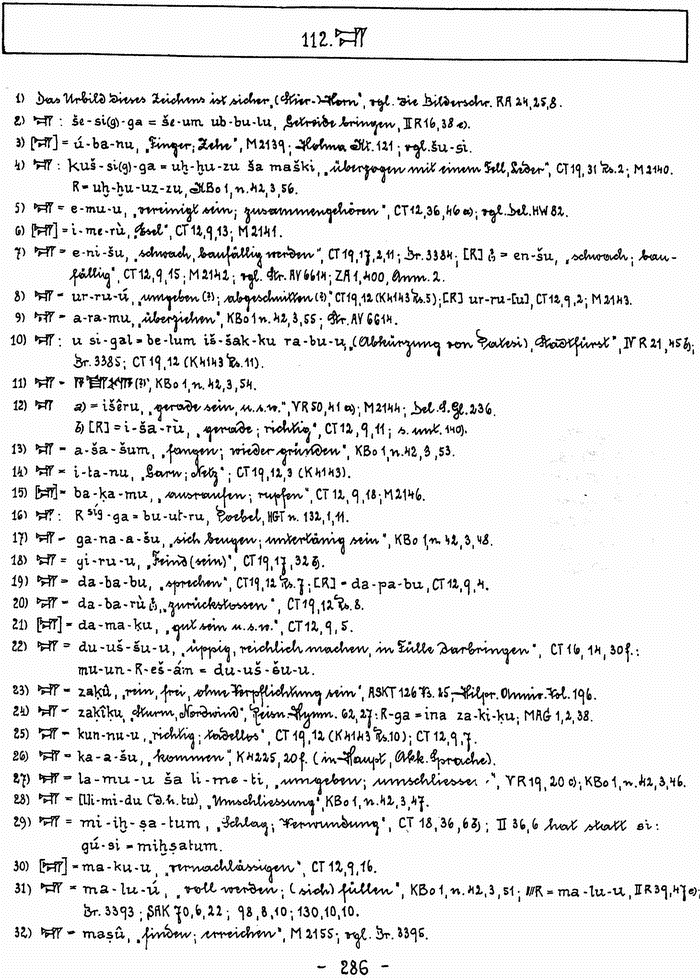 112. 𒋛
1) Das Urbild dieses Zeichens ist sicher „(Stier-)Horn“, vgl. die Bilderschr. RA 24,25,8.
2) 𒋛 : še-si(g)-ga = še-um ub-bu-lu, Getreide bringen, II R 16,38 e).
3) [𒋛] = ú-ba-nu, „Finger; Zehe“, M 2139; Holma Kt. 121; vgl. šu-si.
4) 𒋛 : kuš-si(g)-ga = uḫ-ḫu-zu ša maški, „überzogen mit einem Fell, Leder“, CT 19,31 Rs. 2; M 2140.
R = uḫ-ḫu-uz-zu, KBo 1, n. 42,3,56.
5) 𒋛 = e-mu-u, „vereinigt sein; zusammengehören“, CT 12,36,46 a); vgl. Del. HW 82.
6) [𒋛] = i-me-rù, „Esel“, CT 12,9,13; M 2141.
7) 𒋛 = e-ni-šu, „schwach, baufällig werden“, CT 19,17,2,11; Br. 3384; [R] = en-šu, „schwach; bau-
fällig“, CT 12,9,15; M 2142; vgl. Str. AV 6614; ZA 1,400, Anm. 2.
8) 𒋛 = ur-ru-ú, „umgeben (?); abgeschnitten (?)“, CT 19,12 (K 4143 Rs. 5); [R] ur-ru-[u], CT 12,9,2; M 2143.
9) 𒋛 = a-ra-mu, „überziehen“, KBo 1 n. 42,3,55; Str. AV 6614.
10) 𒋛 : u si-gal = be-lum iš-šak-ku ra-bu-u, (Abkürzung von Patesi), „Stadtfürst“, IV R 21,45 b);
Br. 3385; CT 19,12 (K 4143 Rs. 11).
11) 𒋛 = (?), KBo 1, n. 42,3,54.
12) 𒋛 a) = išêru, „gerade sein, u.s.w.“, V R 50,41 a); M 2144; Del. S. Gl. 236.
b) [R] = i-ša-rù, „gerade; richtig“, CT 12,9,11; s. unt. 140).
13) 𒋛 = a-ša-šum, „fangen; wieder gründen“, KBo 1, n. 42,3,53.
14) 𒋛 = i-ta-nu, „Garn; Netz“; CT 19,12,3 (K 4143).
15) [𒋛] = ba-ḳa-mu, „ausraufen; rupfen“, CT 12,9,18; M 2146.
16) 𒋛 : R síg-ga = bu-ut-ru, Poebel, HGT n. 132,1,11.
17) 𒋛 = ga-na-a-šu, „sich beugen; untertänig sein“, KBo 1, n. 42,3,48.
18) 𒋛 = gi-ru-u, „Feind (sein)“, CT 19,17,32 b).
19) 𒋛 = da-ba-bu, „sprechen“, CT 19,12 Rs. 7; [R] = da-pa-bu, CT 12,9,4.
20) 𒋛 = da-ba-rù, „zurückstossen“, CT 19,12 Rs. 8.
21) [𒋛] = da-ma-ḳu, „gut sein u.s.w.“, CT 12,9,5.
22) 𒋛 = du-uš-šu-u, „üppig, reichlich machen, in Fülle darbringen“, CT 16,14,30 f.:
mu-un-R-eš-ám = du-uš-šu-u.
23) 𒋛 = zakû, „rein, frei, ohne Verpflichtung sein“, ASKT 126 Rs. 25, Hilpr. Anniv. Vol. 196.
24) 𒋛 = zaḳîḳu, „Sturm, Nordwind“, Reisn. Hymn. 62,27: R-ga = ina za-ki-ku; MAG 1,2,38.
25) 𒋛 = kun-nu-u, „richtig; tadellos“, CT 19,12 (K 4143 Rs. 10); CT 12,9,7.
26) 𒋛 = ka-a-šu, „kommen“, K 4225, 20 f. (in Haupt, Akk. Sprache).
27) 𒋛 = la-mu-u ša li-me-ti, „umgeben; umschliessen“, V R 19,20 c); KBo 1, n. 42,3,46.
28) 𒋛 = [l]i-mi-du (d.h. tu), „Umschliessung“, KBo 1, n. 42,3,47.
29) 𒋛 = mi-iḫ-ṣa-tum, „Schlag; Verwundung“, CT 18,36,6 b); II 36,6 hat statt si:
gú-si = miḫṣatum.
30) [𒋛] = ma-ku-u, „vernachlässigen“, CT 12,9,16.
31) 𒋛 = ma-lu-ú, „voll werden; (sich) füllen“, KBo 1, n. 42,3,51; R = ma-lu-u, II R 39,47 e);
Br. 3393; SAK 70,6,22; 98,8,10; 130,10,10.
32) 𒋛 = maṣû, „finden; erreichen“, M 2155; vgl. Br. 3395.
- 286 -